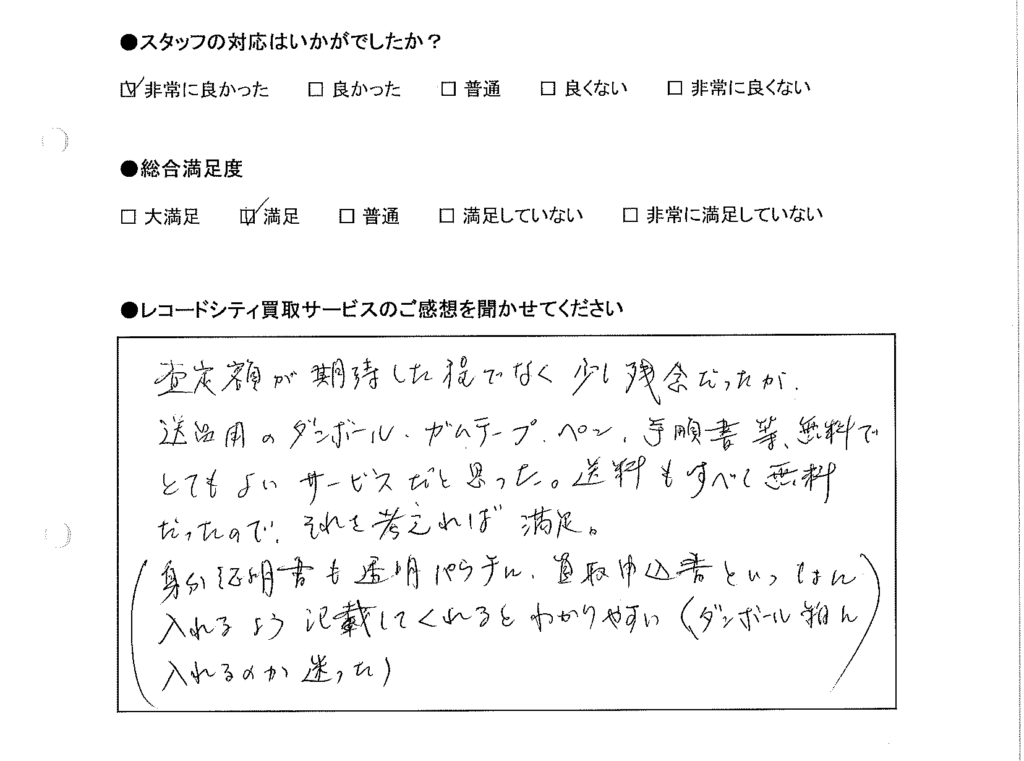 ●スタッフの対応はいかがでしたか？
☑ 非常に良かった □ 良かった □ 普通 □ 良くない □ 非常に良くない
●総合満足度
□ 大満足 ☑ 満足 □ 普通 □ 満足していない □ 非常に満足していない
●レコードシティ買取サービスのご感想を聞かせてください
査定額が期待した程でなく少し残念だったが、
送品用のダンボール・ガムテープ、ペン、手順書等、無料で
とてもよいサービスだと思った。送料もすべて無料
だったので、それを考えれば満足。
(身分証明書も透明 、買取申込書といっしょに
入れるよう記載してくれるとわかりやすい(ダンボール箱に
入れるのか迷った)